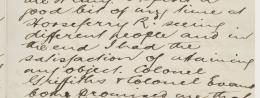 good bit of my time at
Horseferry Rd: seeing
different people and in
the end I had the
satisfaction of attaining
my object. Colonel
Griffiths & Colonel Evans
both promised